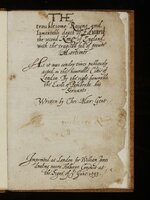 THE
troublesome Raigne and
lamentable death of Edward
the second, King of England,
with the tragicall fall of proud
Mortimer
As it was sundry times publiquely
acted in the honorable Citie of
London, By the right honorable
the Earle of Pembroke his
Servants
Written by Chri. Marl. Gent.
Imprinted at London for William Jones
dwelling neere Holborne Conduit at
the Signe of the Gunne 1593